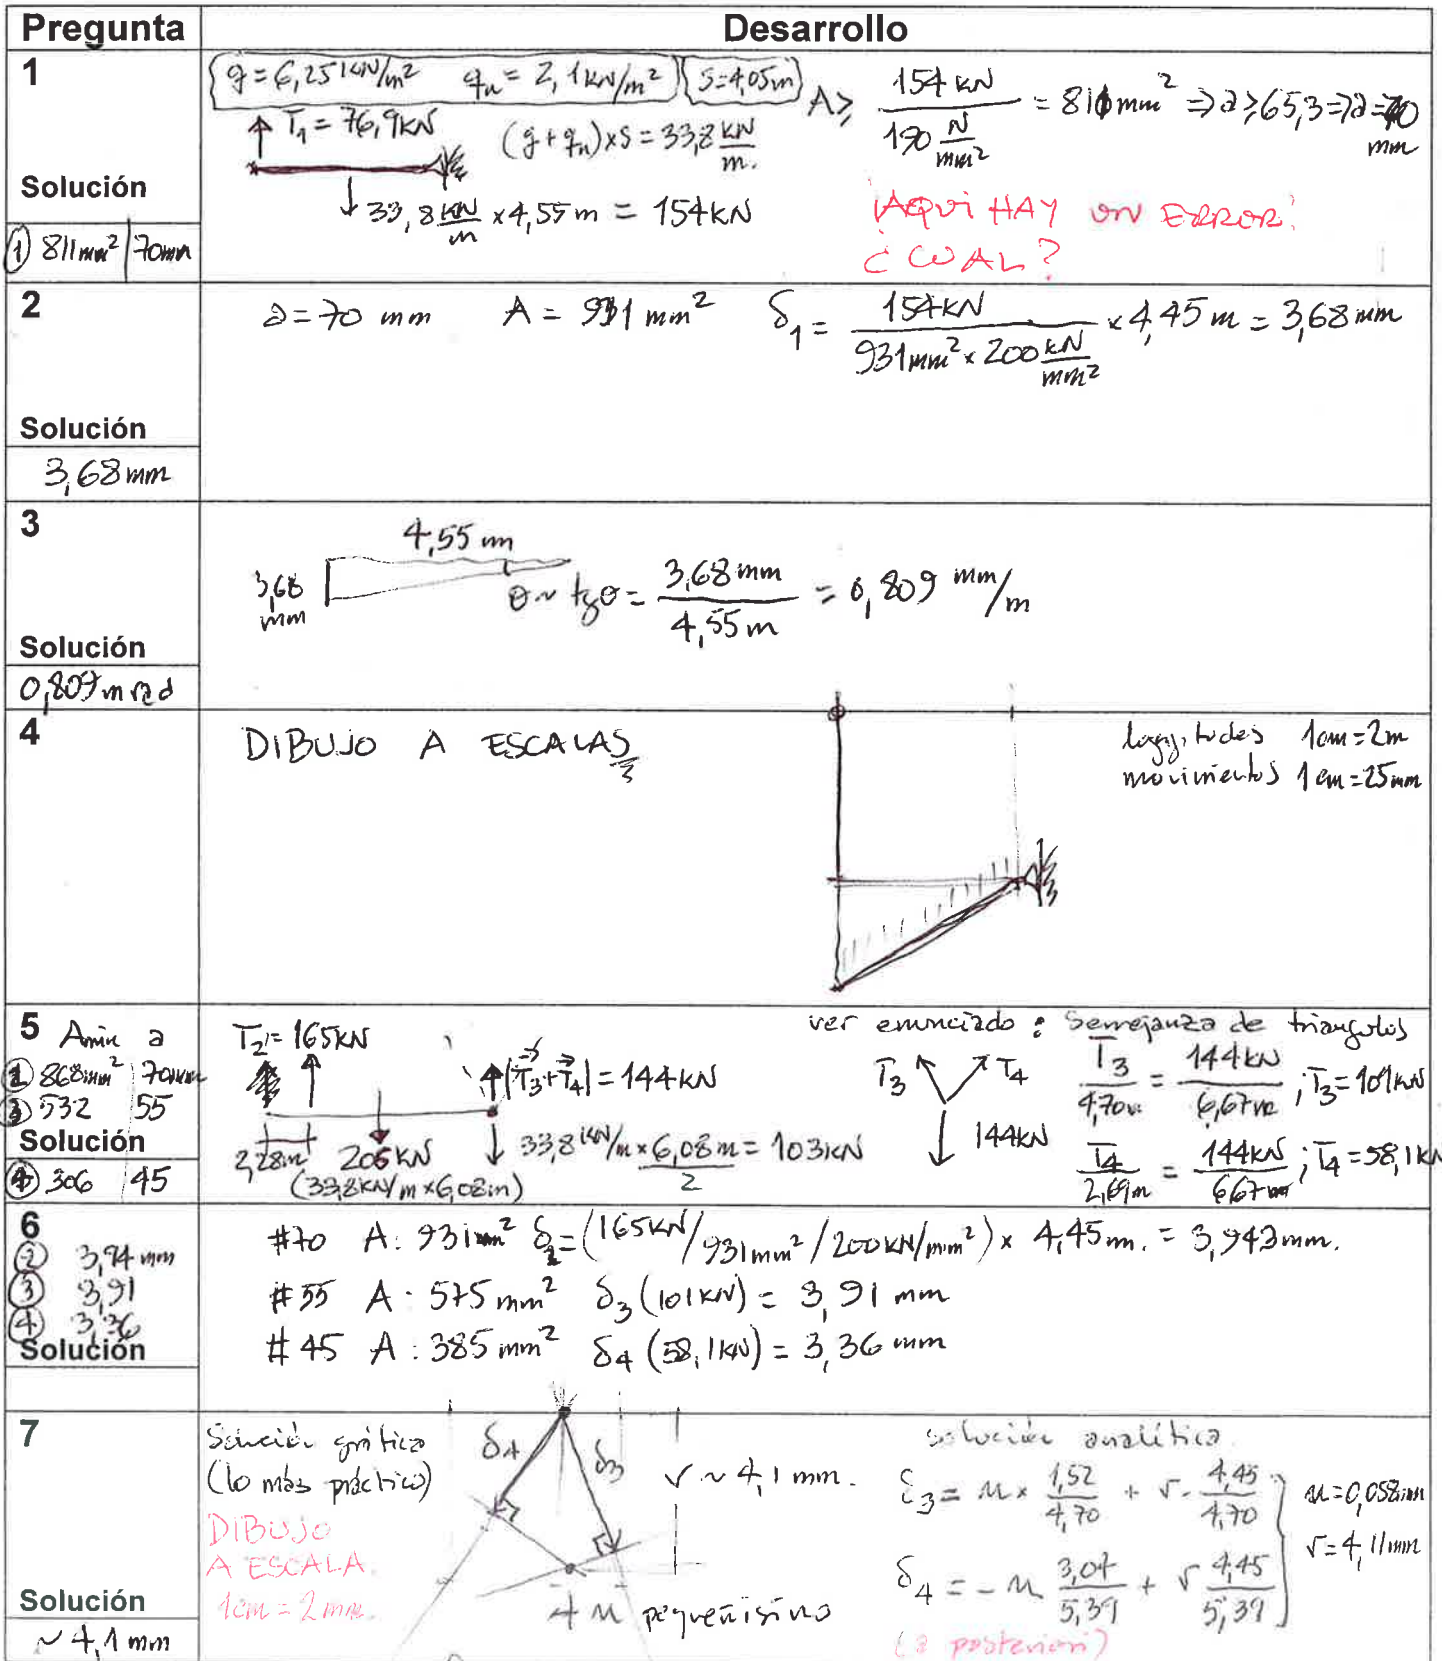 Pregunta
Desarrollo
1
g = 6,25 kN/m² qu = 2,1 kN/m² S=4,05m
T₁ = 76,9KN
(g+qu)×S = 33,8 kN/m.
33,8 kN/m × 4,55 m = 154KN
A ≥ 154 kN / 190 N/mm² = 810 mm² ⇒ a ≥ 65,3 ⇒ a = 70 mm
¡AQUI HAY UN ERROR!
¿CUAL?
Solución
① 811mm² 70mm
2
a = 70 mm A = 931 mm² δ₁ = 154KN / 931mm² × 200 kN/mm² × 4,45 m = 3,68 mm
Solución
3,68mm
3
4,55 m
3,68 mm
θ ~ tgθ = 3,68 mm / 4,55 m = 0,809 mm/m
Solución
0,809 mrad
4
DIBUJO A ESCALAS
longitudes 1cm=2m
movimientos 1cm=25mm
5 Amin a
② 868mm² 70mm
③ 532 55
Solución
④ 306 45
T₂= 165KN
|T₃+T₄| = 144KN
2,28m 205KN
(33,8KN/m×6,08m)
33,8 kN/m × 6,08m / 2 = 103KN
ver enunciado: Semejanza de triangulos
T₃ T₄
144KN
T₃ / 4,70m = 144KN / 6,67m ; T₃ = 101KN
T₄ / 2,69m = 144KN / 6,67m ; T₄ = 58,1KN
6
② 3,94 mm
③ 3,91
④ 3,36
Solución
#70 A: 931mm² δ₂=(165KN/931mm²/200KN/mm²)× 4,45m. = 3,943mm.
#55 A: 575 mm² δ₃ (101KN) = 3,91 mm
#45 A: 385 mm² δ₄ (58,1KN) = 3,36 mm
7
Solución gráfica
(lo más práctico)
DIBUJO
A ESCALA.
1cm = 2mm.
δ₄ δ₃
v ~ 4,1 mm.
u pequeñisimo
solución analítica.
δ₃ = u × 1,52/4,70 + v · 4,45/4,70
δ₄ = -u 3,04/5,39 + v 4,45/5,39
u=0,058mm
v=4,11mm
(a posteriori)
Solución
~ 4,1 mm